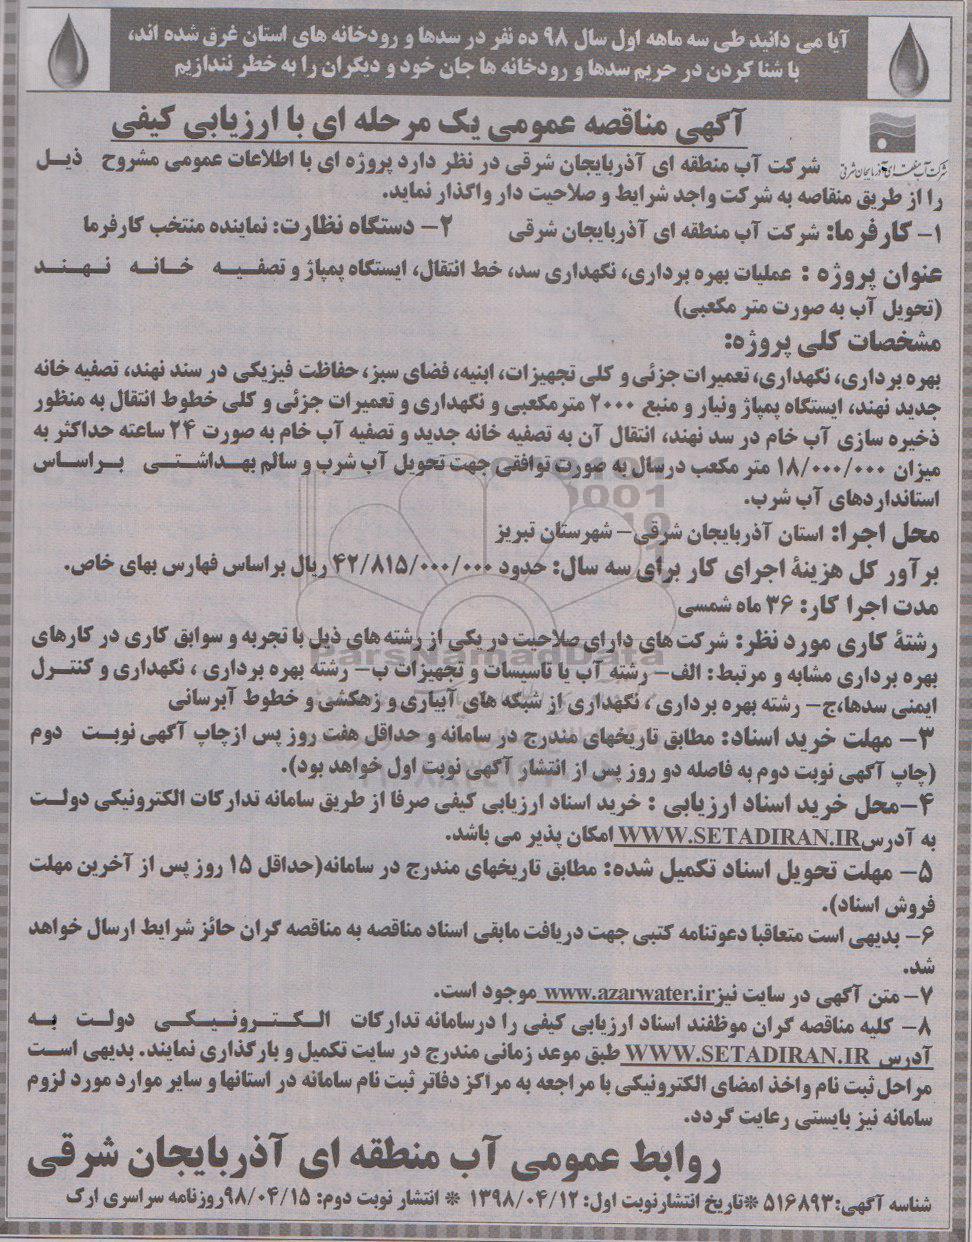 آیا می دانید طی سه ماهه اول سال ۹۸ ده نفر در سدها و رودخانه های استان غرق شده اند،
با شنا کردن در حریم سدها و رودخانه ها جان خود و دیگران را به خطر نندازیم
آگهی مناقصه عمومی یک مرحله ای با ارزیابی کیفی
شرکت آب منطقه ای آذربایجان شرقی
شرکت آب منطقه ای آذربایجان شرقی در نظر دارد پروژه ای با اطلاعات عمومی مشروح ذیل
را از طریق منقاصه به شرکت واجد شرایط و صلاحیت دار واگذار نماید.
۱- کارفرما: شرکت آب منطقه ای آذربایجان شرقی ۲- دستگاه نظارت: نماینده منتخب کارفرما
عنوان پروژه : عملیات بهره برداری، نگهداری سد، خط انتقال، ایستگاه پمپاژ و تصفیه خانه نهند
(تحویل آب به صورت متر مکعبی)
مشخصات کلی پروژه:
بهره برداری، نگهداری، تعمیرات جزئی و کلی تجهیزات، ابنیه، فضای سبز، حفاظت فیزیکی در سند نهند، تصفیه خانه
جدید نهند، ایستگاه پمپاژ ونیار و منبع ۲۰۰۰ مترمکعبی و نگهداری و تعمیرات جزئی و کلی خطوط انتقال به منظور
ذخیره سازی آب خام در سد نهند، انتقال آن به تصفیه خانه جدید و تصفیه آب خام به صورت ۲۴ ساعته حداکثر به
میزان ۱۸/۰۰۰/۰۰۰ متر مکعب درسال به صورت توافقی جهت تحویل آب شرب و سالم بهداشتی براساس
استانداردهای آب شرب.
محل اجرا: استان آذربایجان شرقی- شهرستان تبریز
برآور کل هزینهٔ اجرای کار برای سه سال: حدود ۴۲/۸۱۵/۰۰۰/۰۰۰ ریال براساس فهارس بهای خاص.
مدت اجرا کار: ۳۶ ماه شمسی
رشتهٔ کاری مورد نظر: شرکت های دارای صلاحیت در یکی از رشته های ذیل با تجربه و سوابق کاری در کارهای
بهره برداری مشابه و مرتبط: الف- رشته آب یا تاسیسات و تجهیزات ب- رشته بهره برداری ، نگهداری و کنترل
ایمنی سدها،ج- رشته بهره برداری ، نگهداری از شبکه های آبیاری و زهکشی و خطوط آبرسانی
۳- مهلت خرید اسناد: مطابق تاریخهای مندرج در سامانه و حداقل هفت روز پس ازچاپ آگهی نوبت دوم
(چاپ آگهی نوبت دوم به فاصله دو روز پس از انتشار آگهی نوبت اول خواهد بود).
۴-محل خرید اسناد ارزیابی : خرید اسناد ارزیابی کیفی صرفا از طریق سامانه تدارکات الکترونیکی دولت
به آدرس WWW.SETADIRAN.IR امکان پذیر می باشد.
۵- مهلت تحویل اسناد تکمیل شده: مطابق تاریخهای مندرج در سامانه(حداقل ۱۵ روز پس از آخرین مهلت
فروش اسناد).
۶- بدیهی است متعاقبا دعوتنامه کتبی جهت دریافت مابقی اسناد مناقصه به مناقصه گران حائز شرایط ارسال خواهد
شد.
۷- متن آگهی در سایت نیز www.azarwater.ir موجود است.
۸- کلیه مناقصه گران موظفند اسناد ارزیابی کیفی را درسامانه تدارکات الکترونیکی دولت به
آدرس WWW.SETADIRAN.IR طبق موعد زمانی مندرج در سایت تکمیل و بارگذاری نمایند. بدیهی است
مراحل ثبت نام واخذ امضای الکترونیکی با مراجعه به مراکز دفاتر ثبت نام سامانه در استانها و سایر موارد مورد لزوم
سامانه نیز بایستی رعایت گردد.
روابط عمومی آب منطقه ای آذربایجان شرقی
شناسه آگهی: ۵۱۶۸۹۳ *تاریخ انتشارنوبت اول: ۱۳۹۸/۰۴/۱۲ * انتشار نوبت دوم: ۹۸/۰۴/۱۵روزنامه سراسری ارک
ParsNamadData